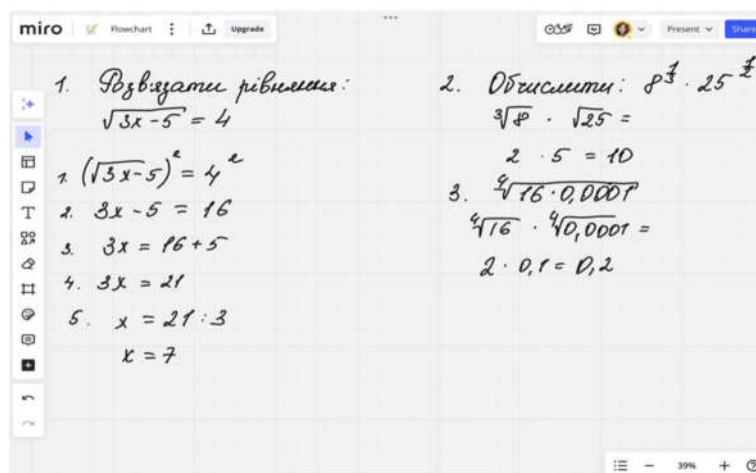 miro Flowchart Upgrade Present Share
1. Розв'язати рівняння:
√(3x-5) = 4
1. (√(3x-5))² = 4²
2. 3x-5 = 16
3. 3x = 16+5
4. 3x = 21
5. x = 21:3
x = 7
2. Обчислити: 8^(1/3) · 25^(1/2)
∛8 · √25 =
2 · 5 = 10
3. ∜(16·0,0001)
∜16 · ∜0,0001 =
2 · 0,1 = 0,2
39%